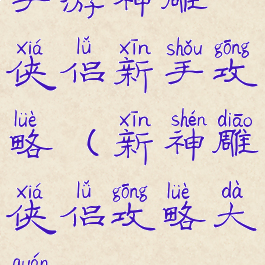 手游神雕
xiá lǚ xīn shǒu gōng
侠侣新手攻
lüè xīn shén diāo
略(新神雕
xiá lǚ gōng lüè dà
侠侣攻略大
quán